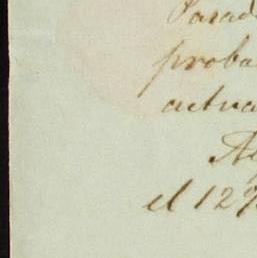 Parad
proba
actua
el 12